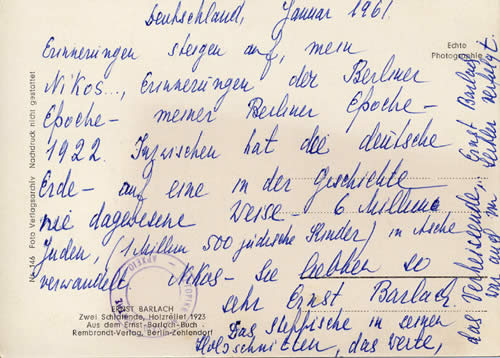 Deutschland, Januar 1961.
Erinnerungen steigen auf, mein
Nikos..., Erinnerungen der Berliner
Epoche – meiner Berliner Epoche –
1922. Inzwischen hat die deutsche
Erde – auf eine in der Geschichte
nie dagewesene Weise – 6 Millionen
Juden, (1 Million 500 jüdische Kinder) in Asche
verwandelt. Nikos – Sie liebten so
sehr Ernst Barlach.
Das in seinen
Holzschnitten, das Weite,
das Verheissende, Ernst Barlach
war auf verfolgt.
Echte
Photographie
Nr. 146 Foto Verlagsarchiv Nachdruck nicht gestattet
ERNST BARLACH
Zwei Schlafende, Holzrelief 1923
Aus dem Ernst-Barlach-Buch
Rembrandt-Verlag, Berlin-Zehlendorf